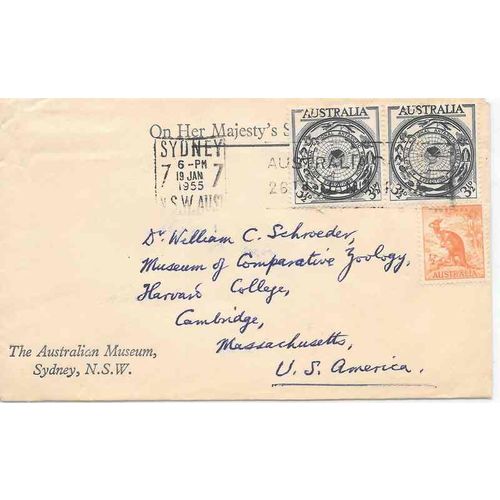 AUSTRALIA AUSTRALIA
On Her Majesty's S
SYDNEY
6-PM
7 7
19 JAN
1955
N.S.W. AUST
AUSTRALIA
26
3½ᴰ 3½ᴰ
½ᴰ
AUSTRALIA
Dr William C. Schroeder,
Museum of Comparative Zoology,
Harvard College,
Cambridge,
Massachusetts,
U.S. America.
The Australian Museum,
Sydney, N.S.W.